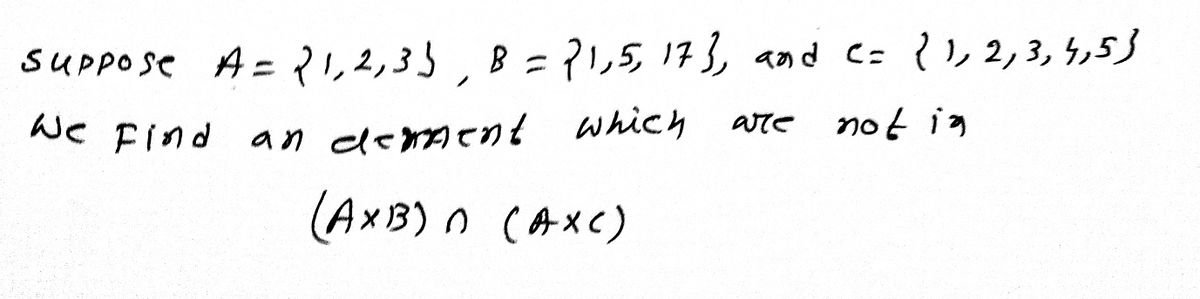 suppose A = {1,2,3}, B = {1,5, 17}, and C = {1, 2, 3, 4, 5}
We Find an element which are not in
(A×B) ∩ (A×C)